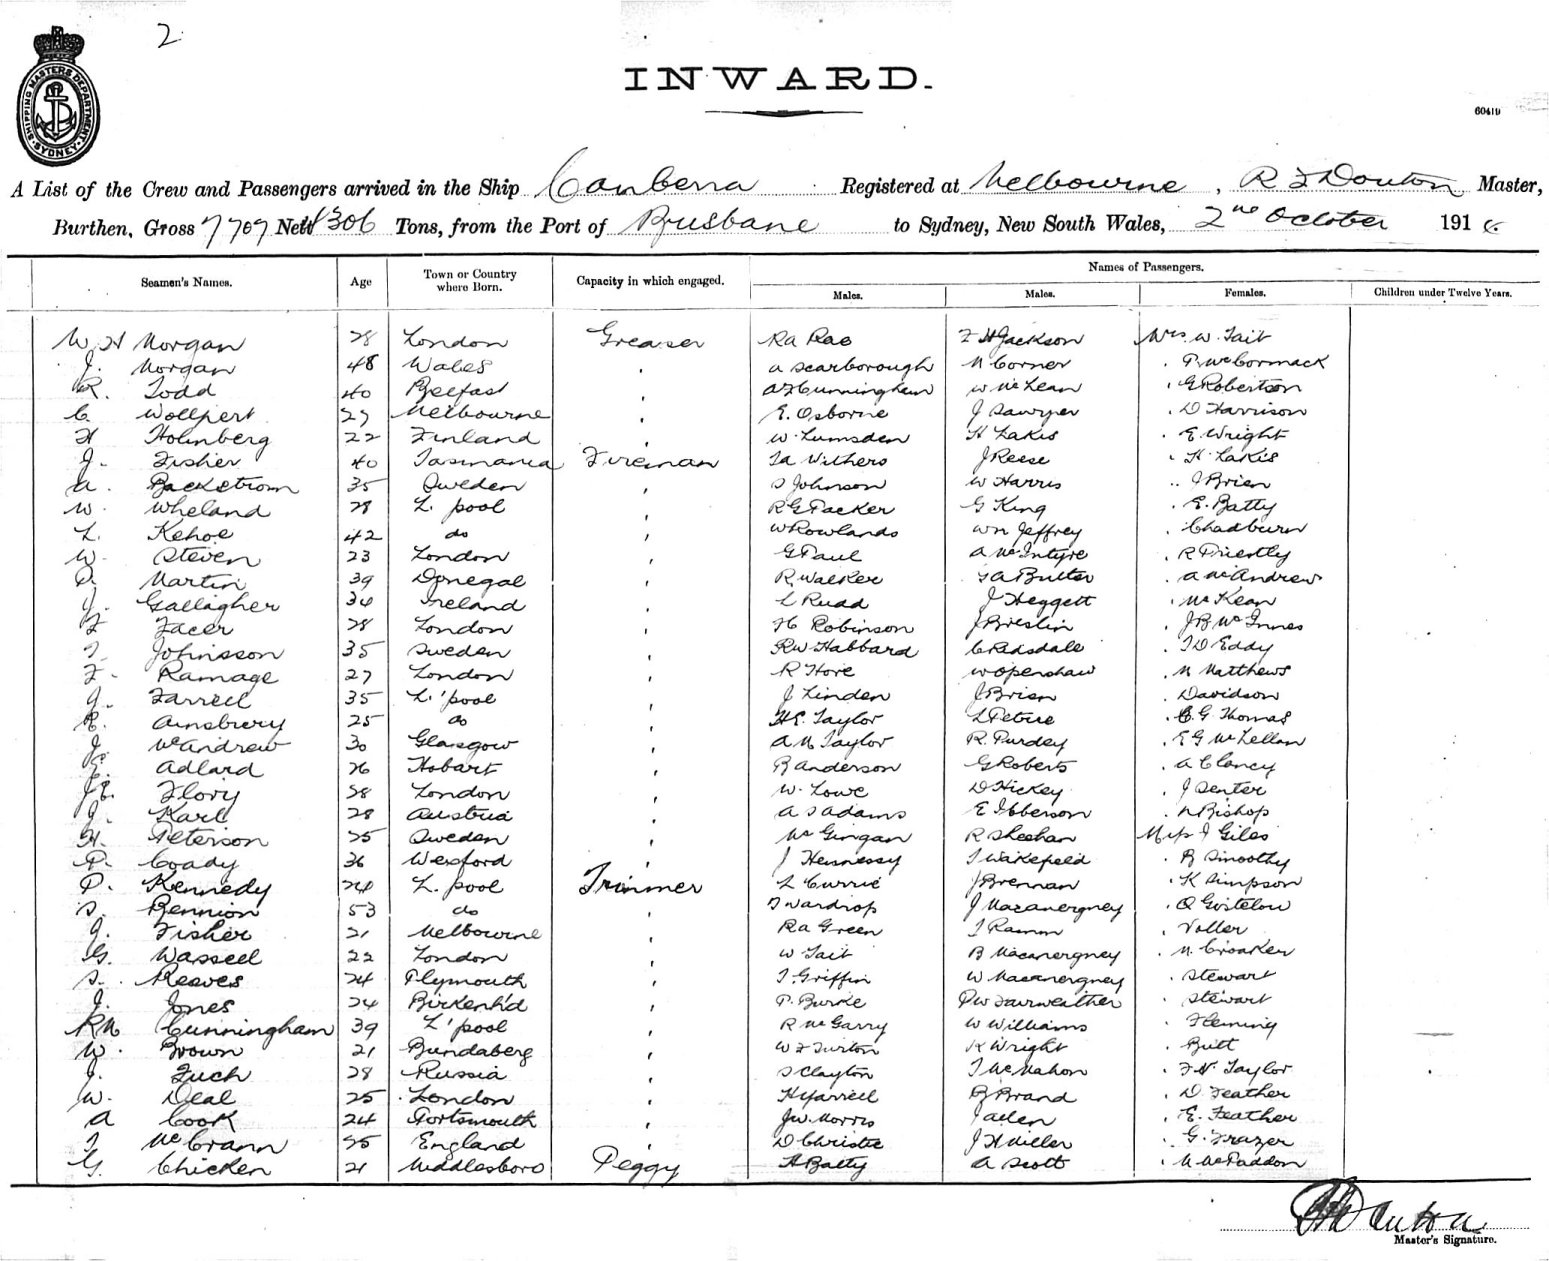 2
INWARD.
SHIPPING MASTERS DEPARTMENT SYDNEY
60419
A List of the Crew and Passengers arrived in the Ship Canberra Registered at Melbourne, Master,
Burthen, Gross 7707 Nett 4306 Tons, from the Port of Brisbane to Sydney, New South Wales, 2nd October 191
Names of Passengers.
Seamen's Names. Age Town or Country where Born. Capacity in which engaged. Males. Males. Females. Children under Twelve Years.
W H Morgan 28 London Greaser RA Rae F H Jackson Mrs W. Tait
J. Morgan 48 Wales " A Scarborough N Corner " P. McCormack
R. Todd 40 Belfast " A F Cunningham W McLean " G Robertson
C Wollpert 27 Melbourne " E. Osborne J Sawyer " D Harrison
H Holmberg 22 Finland " W. Lumsden H Lakis " E Wright
J. Fisher 40 Tasmania Fireman J Reese " H. Lakis
A. Backstrom 35 Sweden " S Johnson W Harris " J Brien
W. Wheland 28 L. pool " R G Packer G King " E. Batty
L. Kehoe 42 do " W Rowlands Wm Jeffrey " Chadburn
W. Steven 23 London " G Paul A McIntyre " R Priestly
D. Martin 39 Donegal " R. Walker " A McAndrew
J. Gallagher 34 Ireland " L Rudd J Heggett " McKean
F Facer 28 London " H Robinson J Breslin " J B McInnes
Johnsson 35 Sweden " R W Habbard C Ridsdale " J D Eddy
F. Ramage 27 London " R Hore W Openshaw " M Matthews
J. Farrell 35 L'pool " J Linden J Brien " Davidson
R. Ainsbury 25 do " H E. Taylor L Petrie " C. G Thomas
J. McAndrew 30 Glasgow " A M Taylor R. Purdey " E G McLellan
C. Adlard 26 Hobart " B Anderson G Roberts " A Clancy
Flory 28 London " W. Lowe D Hickey " J Senter
J. Karl 28 Austria " A S Adams E Ibberson " Bishop
H. Peterson 25 Sweden " McGingan R Sheehan Miss J Giles
P. Coady 36 Wexford " J Hennessy J Wakefield " B Smoothy
P. Kennedy 24 L. pool Trimmer L Currie J Brennan " K Simpson
S. Bennion 53 do " J Wardrop J Macanergney
J. Fisher 21 Melbourne " R A Green " Voller
G. Wassell 22 London " W Tait B Macanergney " M. Croaker
S. Reeves 24 Plymouth " J. Griffin W Macanergney " Stewart
J. Jones 24 Birkenh'd " P. Burke P W Fairweather " Stewart
R M Cunningham 39 L'pool " R McGarry W Williams " Fleming
W. Brown 21 Bundaberg " W F Turton R Wright " Butt
J. Zuch 28 Russia " S Clayton J McMahon " F. H. Taylor
W. Deal 25 London " H Yarrell B Brand " D Feather
A Cook 24 Portsmouth " J W. Morris J Allen " E. Feather
J McCrann 25 England " D Christie J H Miller " G. Frazer
G. Chicken 21 Middlesboro Peggy A Batty A Scott " M McFaddon
Master's Signature.